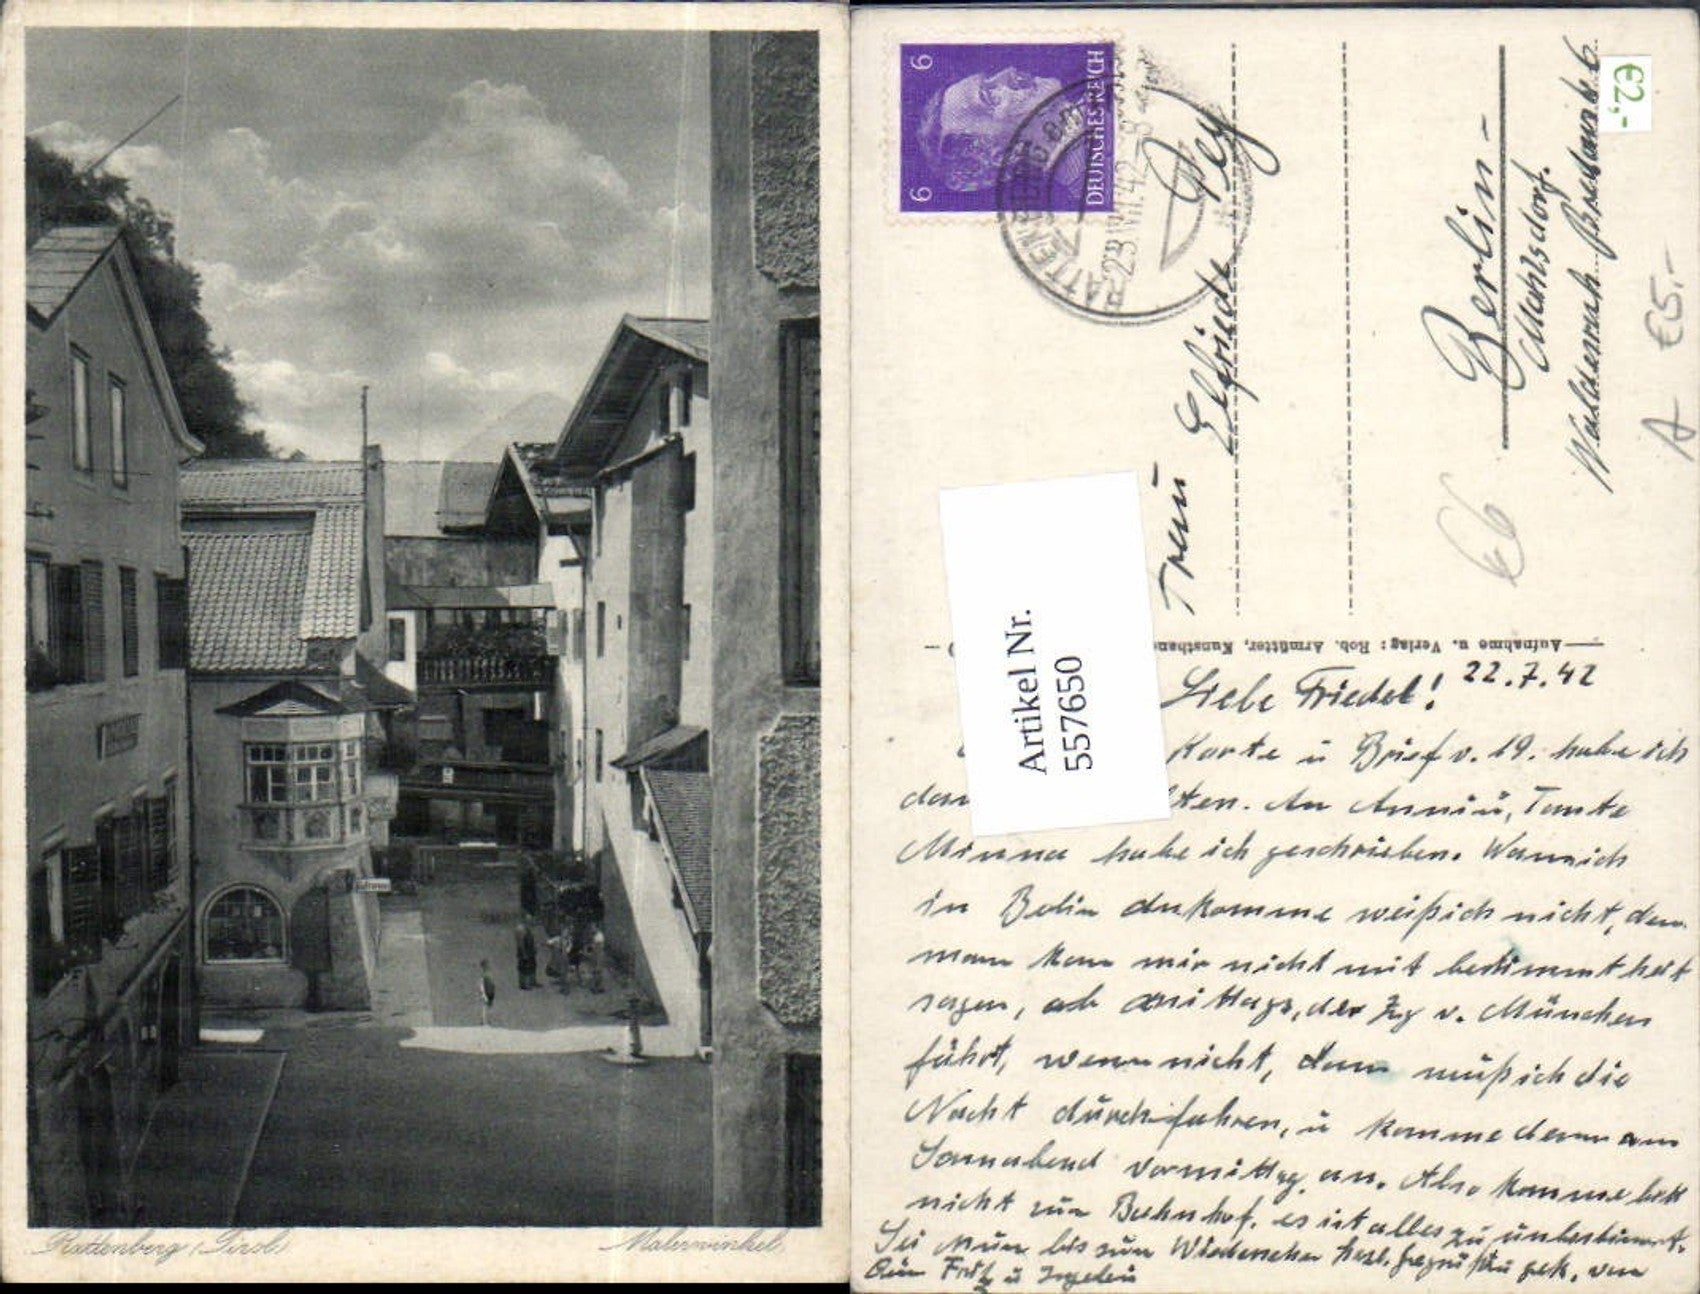 Rattenberg (Tirol)
Malerwinkel
6 6
DEUTSCHES REICH
RATTENBERG
23.VII.42-8
€2,-
€5.-
A
€6
Frau
Elfriede
Berlin-
Mahlsdorf.
Artikel Nr.
557650
Aufnahme u. Verlag: Rob. Armütter, Kunsthan
22.7.42
Liebe Friedel!
Karte ü Brief v. 19. habe ich
ten. An Anni ü, Tante
Minna habe ich geschrieben. Wann ich
in Berlin ankomme weiß ich nicht, denn
man kann mir nicht mit bestimmtheit
sagen, ob mittags, der Zug v. München
fährt, wenn nicht, dann muß ich die
Nacht durchfahren, ü komme dann am
Sonnabend vormittag an. Also komme bitte
nicht zum Bahnhof, es ist alles zu unbestimmt.
Sei nun bis zum Wiedersehen herzl. gegrüßt ü gek. von
Fritz ü